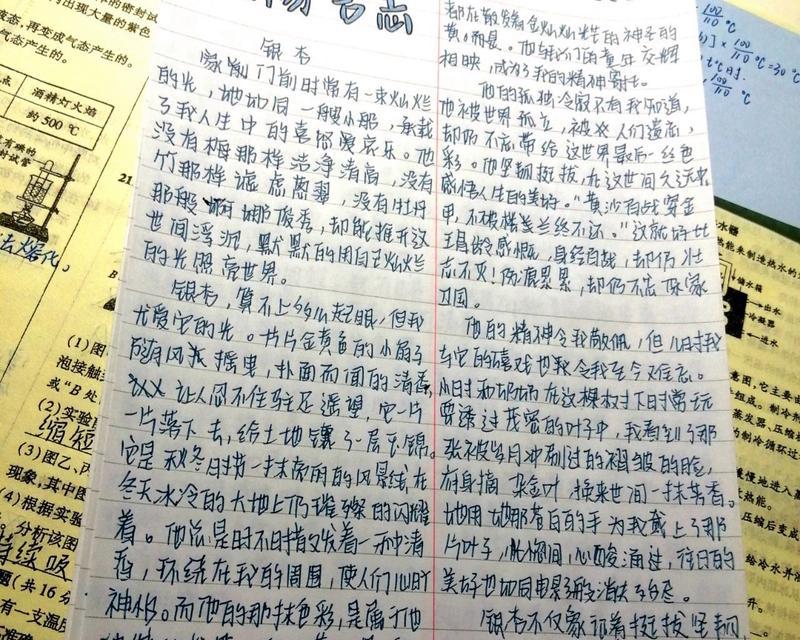 银杏
家前门前时常有一束灿烂
的光，她如同一艘小船，承载
了我人生中的喜怒哀乐。他
没有梅那样洁净清高，没有
竹那样谦虚
那般 俊秀，却能推开这
世间浮沉，默默的用自己灿烂
的光照亮世界。
银杏，算不上多么起眼，但我
尤爱它的光。片片金黄色的小扇子
随风摇曳，扑面而闻的清香，
让人忍不住驻足遥望，它一片
一片落下去，给土地镶了一层玉锦。
它是秋冬日语一抹亮丽的风景线在
冬天冰冷的大地上仍璀璨的闪耀
着。他总是时不时散发着一种清
香，环绕在我的周围，使人们心旷
神怡。而他的那抹色彩，是属于他
都在散发着金灿灿
相映，成为了我的精神寄托。
他的孤独冷寂只有我知道，
他被世界孤立，被人们遗忘，
却仍不忘带给这世界最后一丝色
彩。他坚韧挺拔，在这世间久远中
感悟人生的美好。“黄沙百战穿金
甲，不破楼兰终不还。”这就好比
王昌龄感慨，身经百战，却仍壮
志不灭！伤痕累累，却仍不忘保家
卫国。
他的精神令我敬佩，但儿时我
与它的嬉戏也令我至今难忘。
小时和奶奶在这棵树下时常玩
耍透过茂密的叶子中，我看到了那
张被岁月冲刷过的褶皱的脸，
府身摘一朵金叶，换来世间一抹芳香。
她用她那苍白的手为我戴上了那
片叶子，恍惚间，心酸涌过，往日的
美好也如同电影般消失了
银杏不仅象征着挺拔坚韧
21
酒精灯火焰
约 500 ℃
气态产生的。
再变成气态产生的。
(1)图
泡接触
或“B 处
(2)实验
缩短
(3)图乙、
现象，其中
(4)根据实验
分析该图
持续吸
题(共16分
有一支温度
储水箱
出水
冷凝器
进水